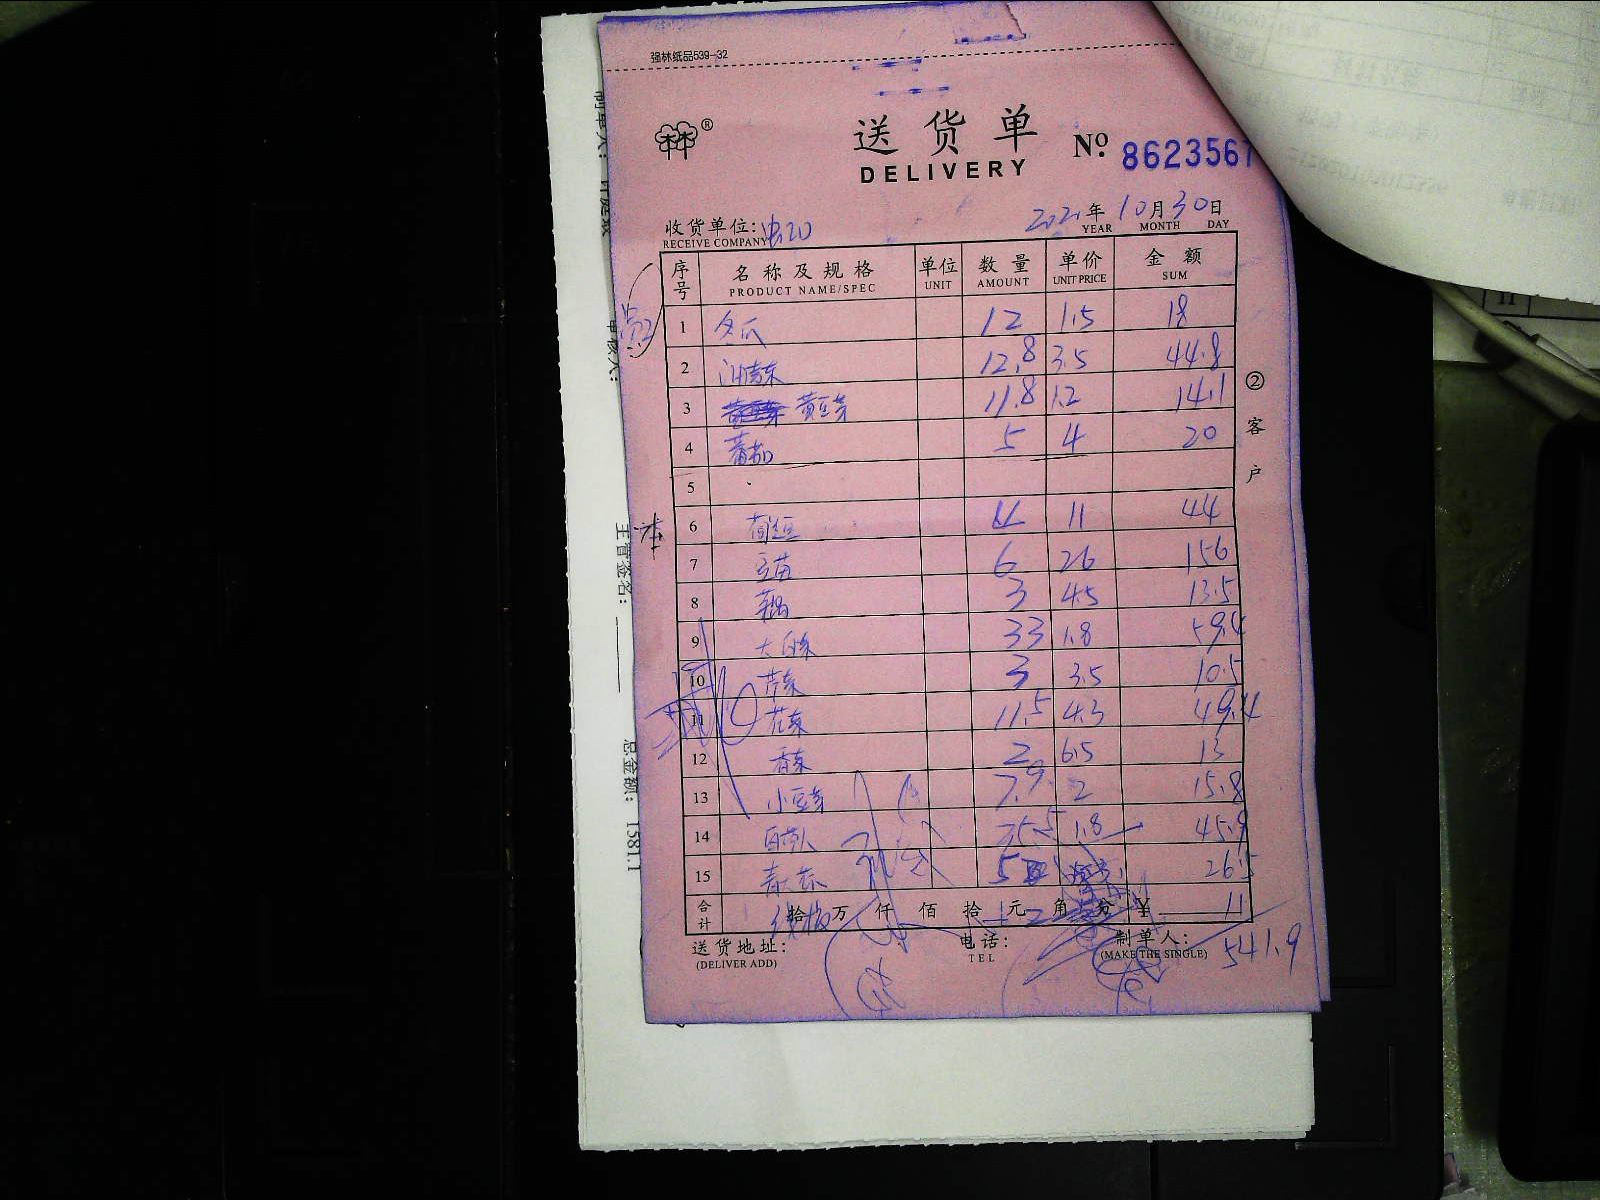 强林纸品539-32
林林®
送货单 Nº. 8623567
DELIVERY
收货单位: 2021年10月30日
RECEIVE COMPANY YEAR MONTH DAY
序号 名称及规格 单位 数量 单价 金额
PRODUCT NAME/SPEC UNIT AMOUNT UNIT PRICE SUM
1 冬瓜 12 1.5 18
2 12.8 3.5 44.8
3 黄豆芽 11.8 1.2 14.1
4 蕃茄 5 4 20
5
6 荷兰豆 4 11 44
7 豆苗 6 26 156
8 藕 3 4.5 13.5
9 大白菜 33 1.8 59.4
10 芹菜 3 3.5 10.5
11 花菜 11.5 4.3 49.4
12 香菜 2 6.5 13
13 小豆芽 7.9 2 15.8
14 25.5 1.8 45.9
15 5 26.5
合计 拾 万 仟 佰 拾 元 角 分 ¥ 11
送货地址: 电话: 制单人: 541.9
(DELIVER ADD) TEL (MAKE THE SINGLE)
②客户
制单人:
审核人:
主管签名:
总金额: 1581.1